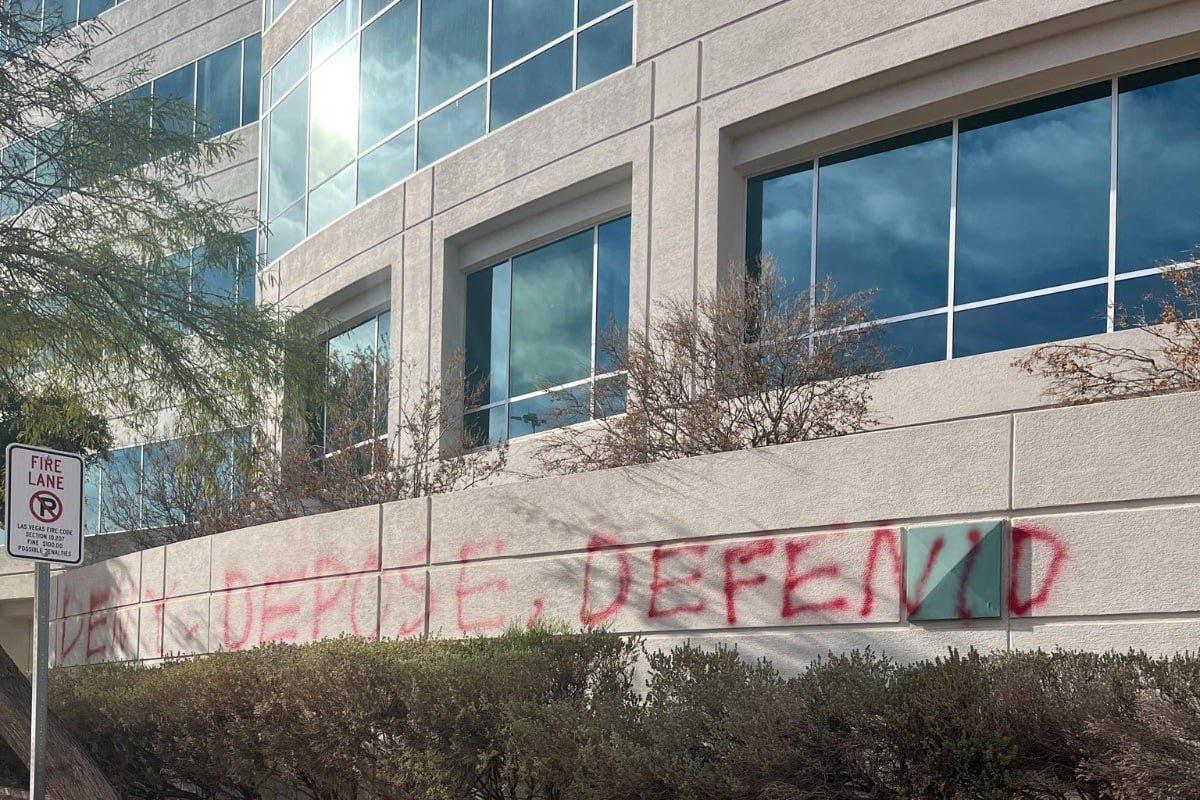 FIRE
LANE
P
LAS VEGAS FIRE CODE
SECTION 10.207
FINE $100.00
POSSIBLE PENALTIES
DENY, DEPOSE, DEFENID